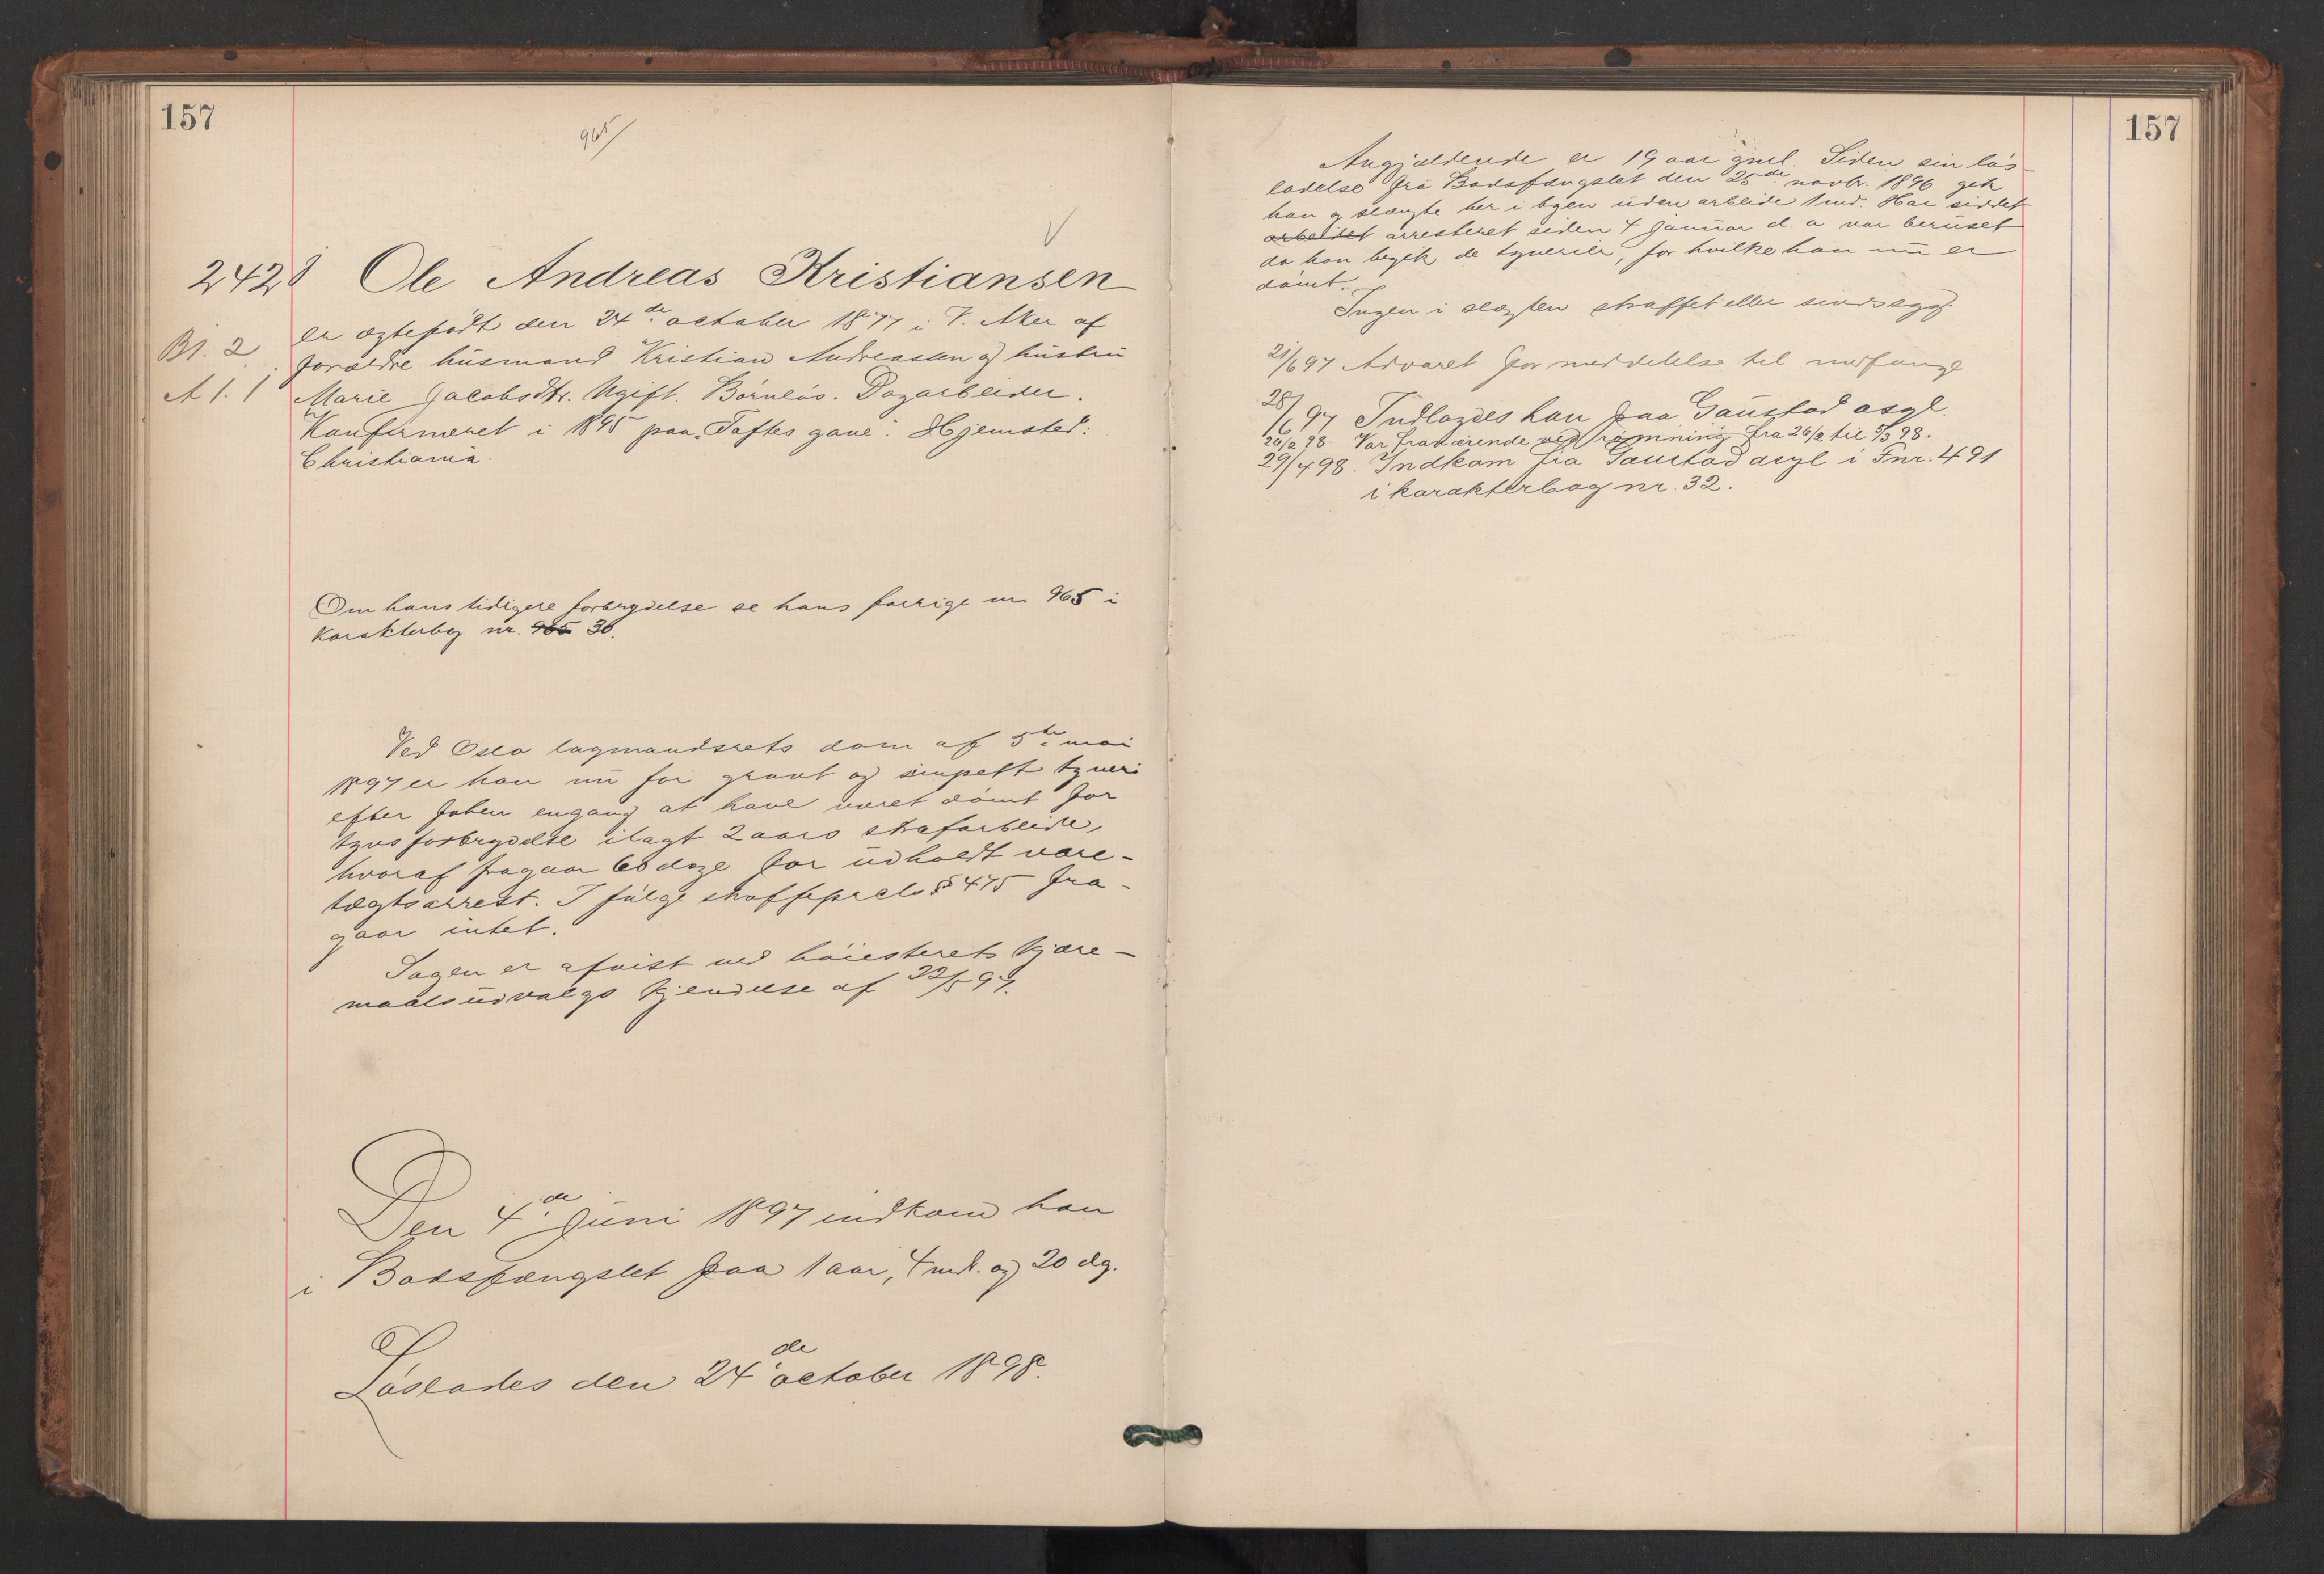 157
965/
V
242 Ole Andreas Kristiansen
er ægtefödt den 24de october 1877 i V. Aker af
Bl. 2 forældre husmand Kristian Andreassen og hustru
A l. 1 Marie Jacobsdtr. Ugift. Börnlös. Dagarbeider.
Konfirmeret i 1895 paa „Toftes gave“. Hjemsted:
Christiania.
Om hans tidigere forbrydelse se hans forrige nr 965 i
karakterbog nr. 965 30.
Ved Oslo lagmandsrets dom af 5te mai
1897 er han nu for grovt og simpelt tyveri
efter foben engang at have været dömt for
tyvsforbrydelse ilagt 2 aars strafarbeide,
hvoraf fragaar 60 dage for udholdt vare-
tægtsarrest. I fölge straffeprcls § 475 fra-
gaar intet.
Sagen er afvist ved höiesterets kjære-
maalsudvalgs kjendelse af 22/5 97.
Den 4de Juni 1897 indkom han
i Bodsfængslet paa 1 aar, 4 md. og 20 dg.
Löslades den 24de october 1898.
157
Angjældende er 19 aar gml. Siden sin lös-
ladelse fra Bodsfængslet den 25de novbr. 1896 gik
han og slængte her i byen uden arbeide 1 md. Har siddet
arbeidet arresteret siden 4 januar d. a var beruset
da han begik de tyverier, for hvilke han nu er
dömt.
Ingen i slægten straffet eller sindssyg.
21/6 97 Advaret for meddelelse til medfange
28/6 97 Indlagdes han paa Gaustad asyl.
26/2 98. Var fraværende ved römning fra 26/2 til 5/3 98.
29/4 98. Indkom fra Gaustad asyl i Fnr. 491
i karakterbog nr. 32.